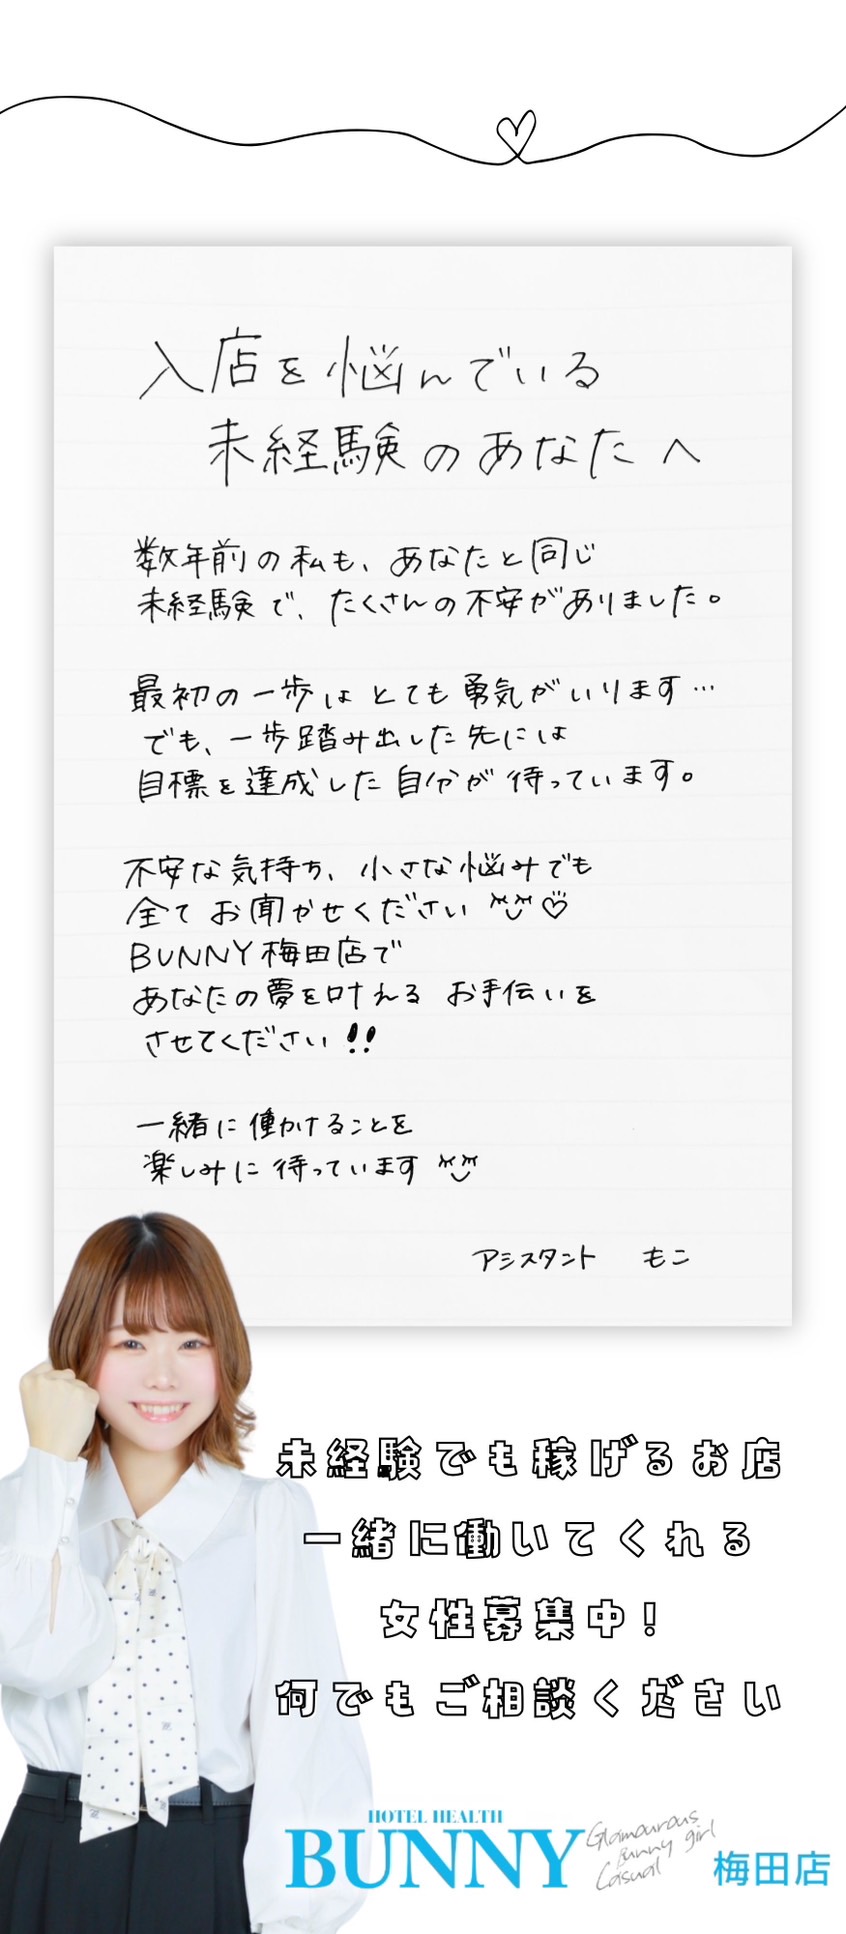 入店を悩んでいる
未経験のあなたへ
数年前の私も、あなたと同じ
未経験で、たくさんの不安がありました。
最初の一歩はとても勇気がいります…
でも、一歩踏み出した先には
目標を達成した自分が待っています。
不安な気持ち、小さな悩みでも
全てお聞かせください
BUNNY梅田店で
あなたの夢を叶える お手伝いを
させてください!!
一緒に働けることを
楽しみに待っています
アシスタント もこ
未経験でも稼げるお店
一緒に働いてくれる
女性募集中!
何でもご相談ください
HOTEL HEALTH
BUNNY
Glamourous
Bunny girl
Casual
梅田店